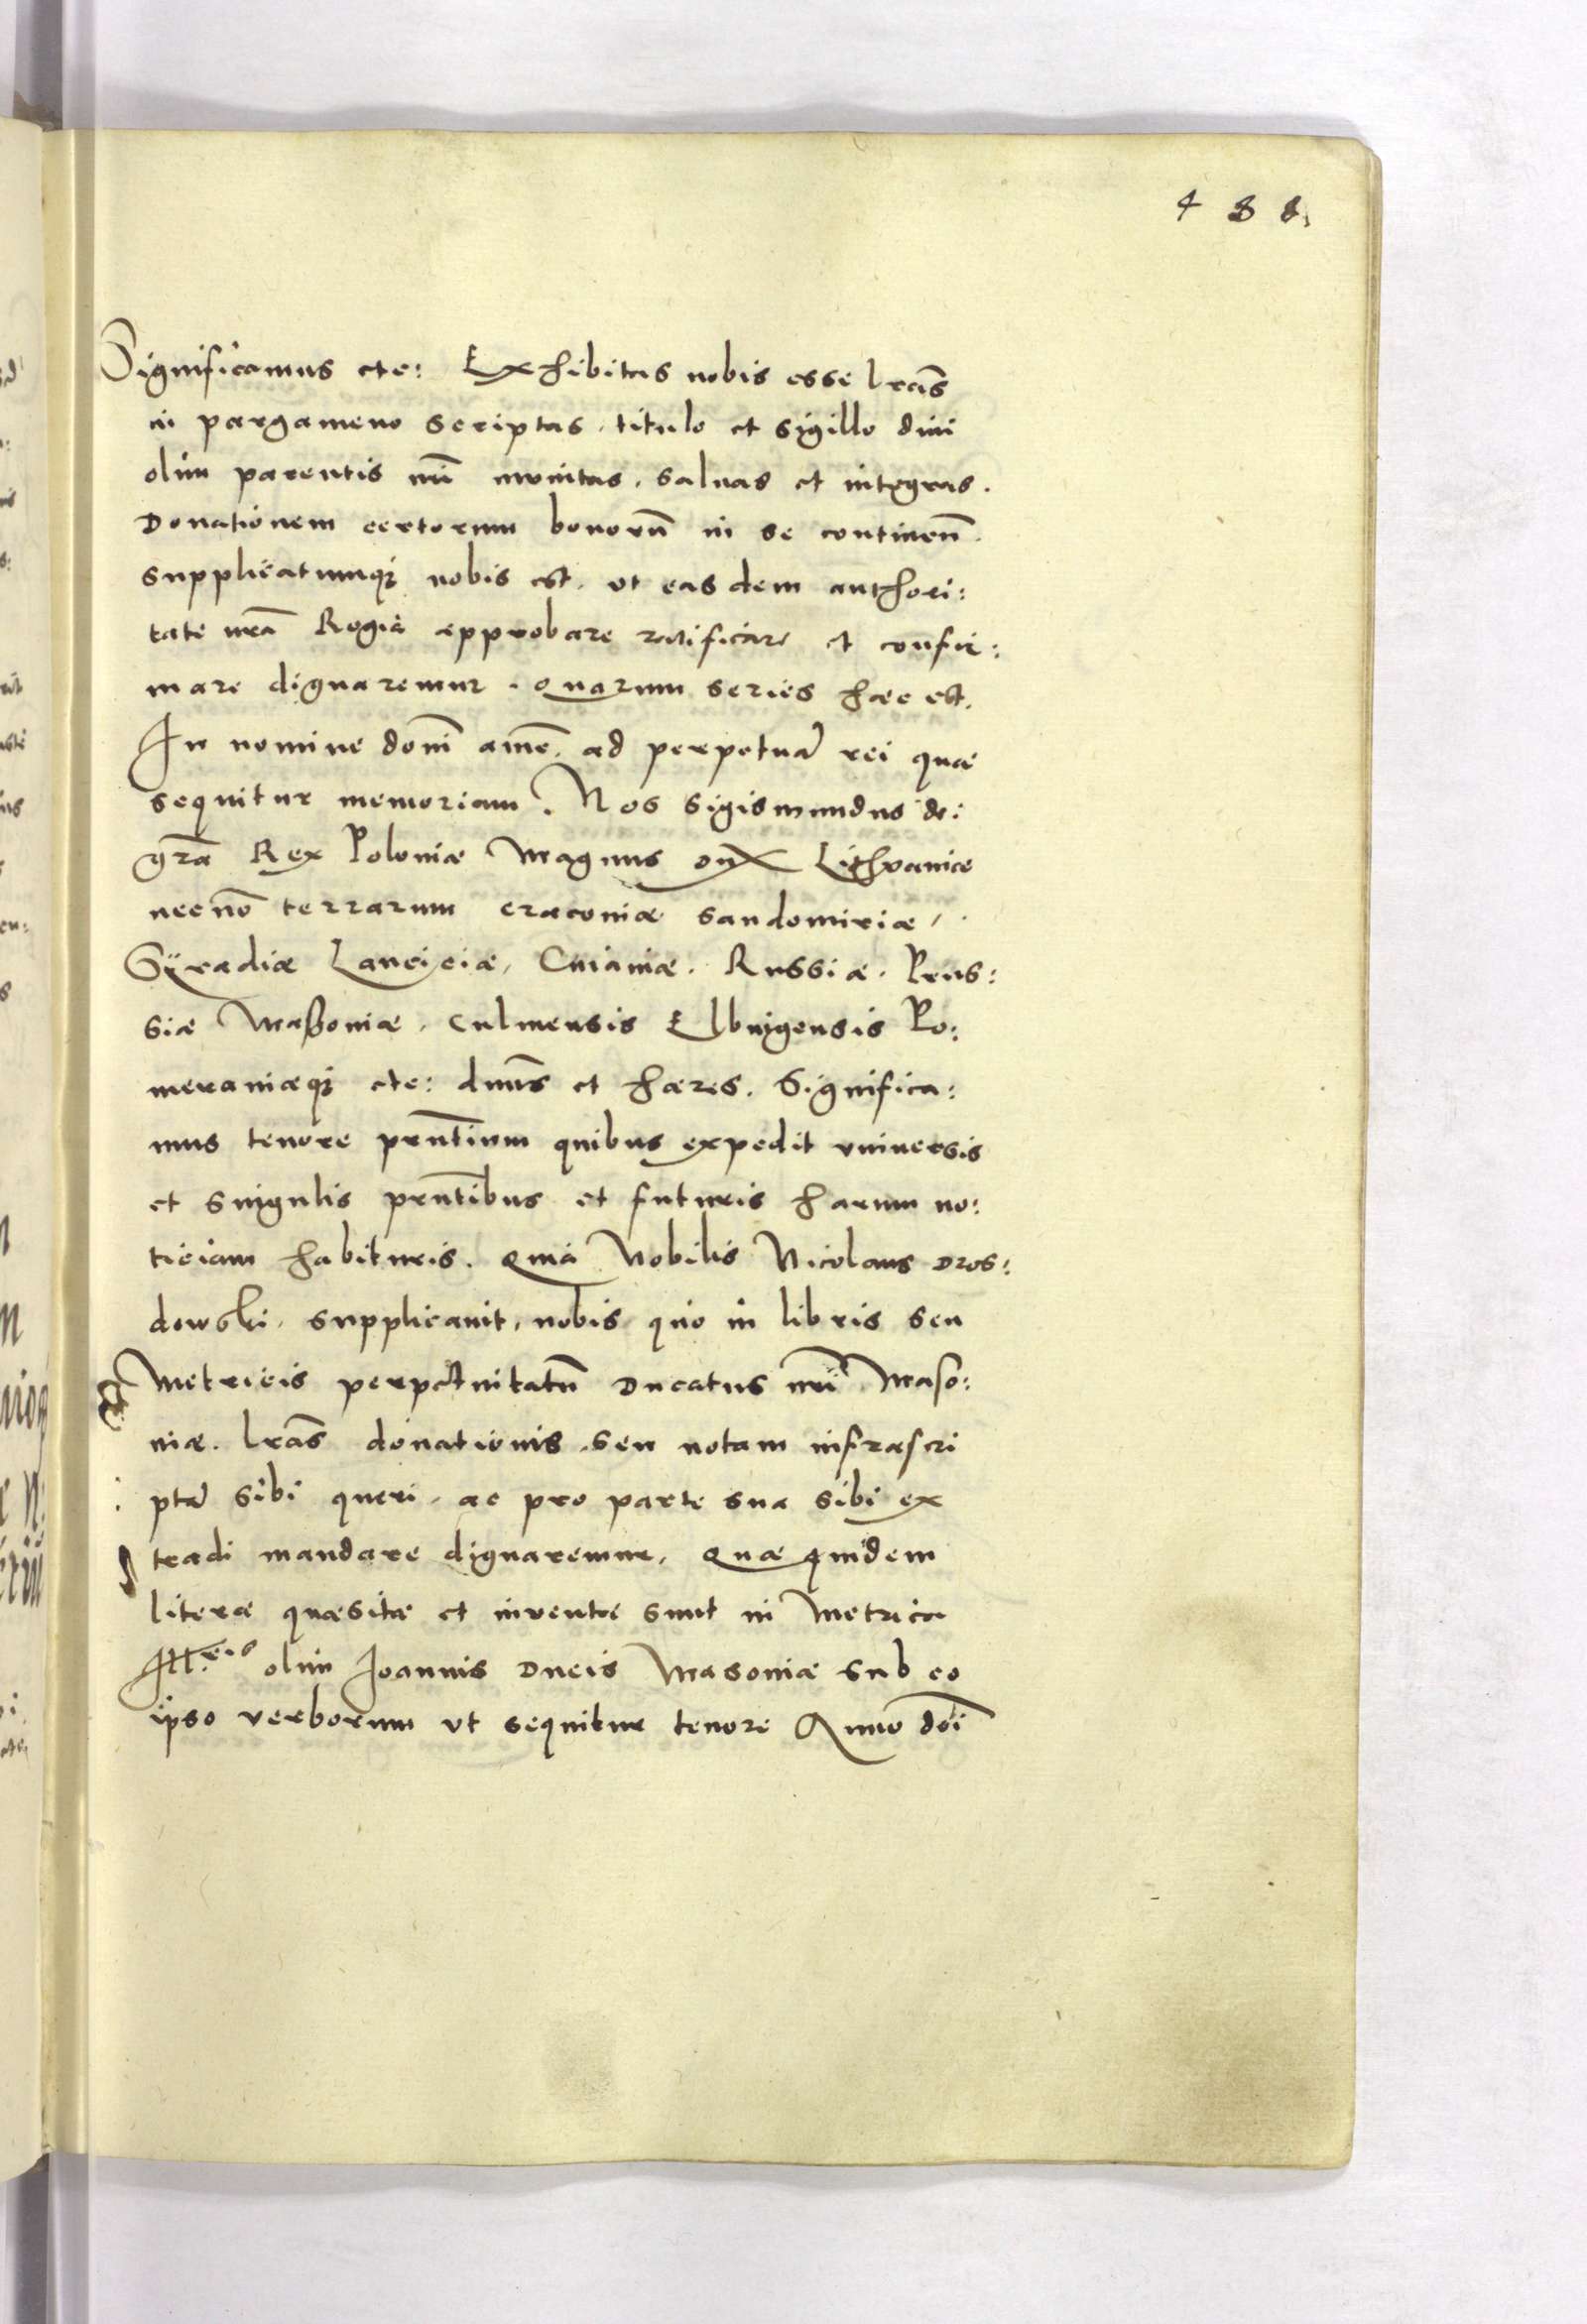 488.
Significamus etc: Exhibitas nobis esse lrãs
in pargameno scriptas, titulo et sigillo divi
olim parentis nrĩ munitas, saluas et integras.
Donationem certorum bonorũ in se continen̄.
supplicatumqȝ nobis est, ut easdem authori:
tate nrã Regia approbare ratificare et confir:
mare dignaremur. Quarum series haec est.
In nomine domĩ amẽ. ad perpetuã rei quae
sequitur memoriam. Nos Sigismundus dei
grã Rex Poloniae Magnus Dux Lithvaniae
necnõ terrarum Cracoviae Sandomiriae,
Syradiae Lanciciae, Cuiaviae. Russiae. Prus:
siae Maßoviae, Culmensis Elbingensis Po:
meraniaeqȝ etc: dnũs et haeres. Significa:
mus tenore prñtium quibus expedit universis
et singulis prñtibus et futuris harum no:
ticiam habituris. Quia Nobilis Nicolaus Dros:
dowski, supplicavit, nobis quo in libris seu
Metricis perpetuitatũ Ducatus nrĩ Maso:
viae. lrãs donationis seu notam infrascri
ptã sibi queri, ac pro parte sua sibi ex
tradi mandare dignaremur, Quae quidem
literae quaesitae et inventae sunt in Metrica
Ill:cis olim Joannis Ducis Masoviae sub eo
ipso verborum ut sequitur tenore Anno doĩ